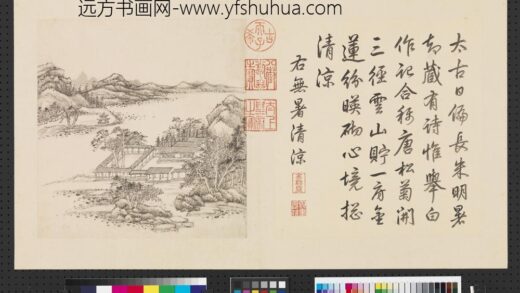 远方书画网-www.yfshuhua.com
太古日偏長朱明暑
却藏有詩惟舉白
作記合稱唐松菊開
三徑雲山貯一房金
蓮紛暎砌心境摠
清涼
右無暑清涼
古希天子